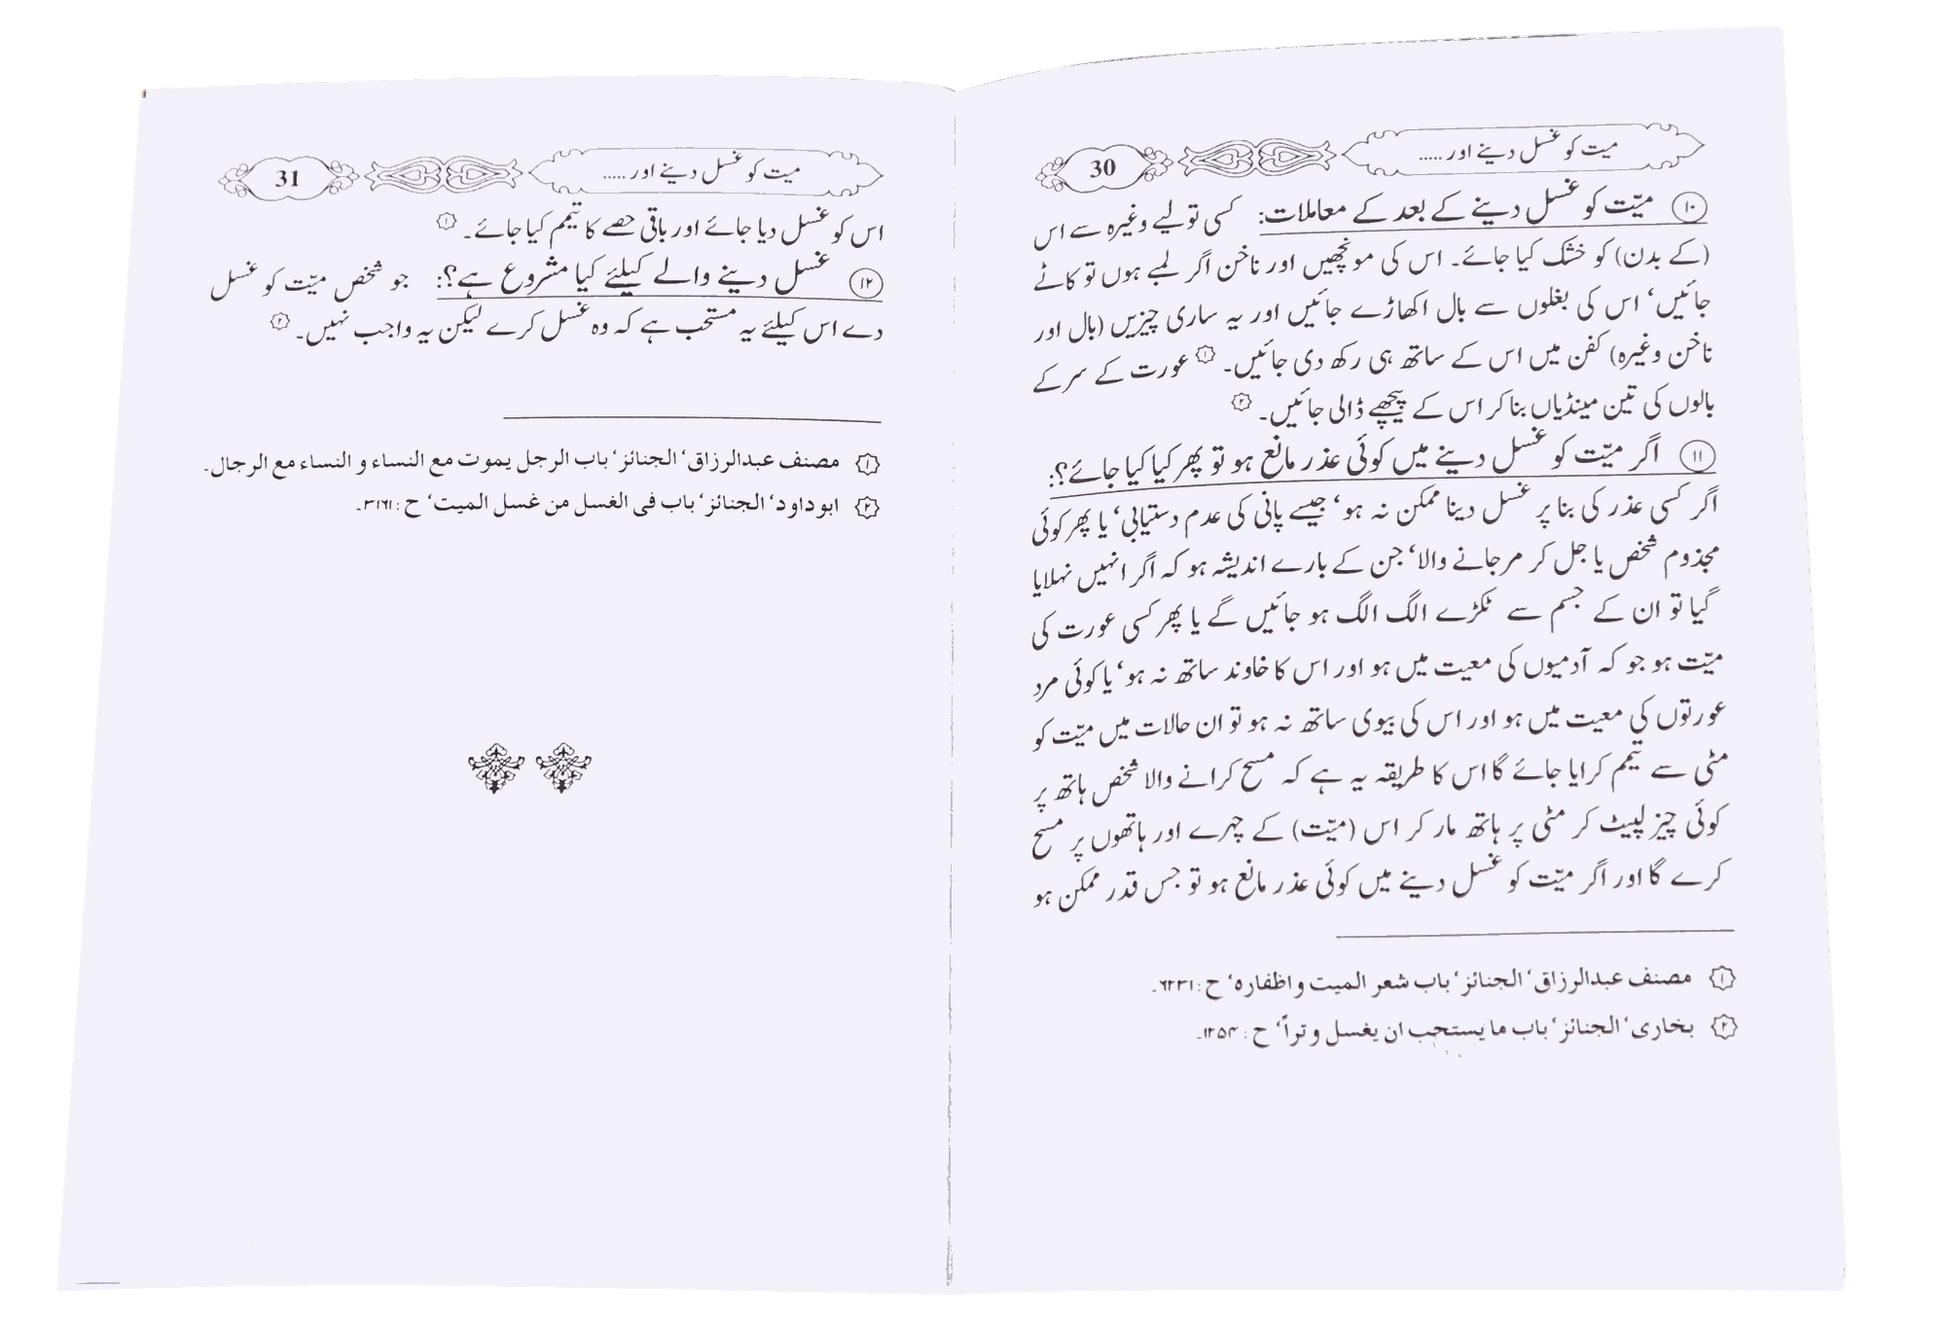 میت کو غسل دینے اور ..... 30
⑩ میّت کو غسل دینے کے بعد کے معاملات: کسی تولیے وغیرہ سے اس
(کے بدن) کو خشک کیا جائے۔ اس کی مونچھیں اور ناخن اگر لمبے ہوں تو کاٹے
جائیں‘ اس کی بغلوں سے بال اکھاڑے جائیں اور یہ ساری چیزیں (بال اور
ناخن وغیرہ) کفن میں اس کے ساتھ ہی رکھ دی جائیں۔ ۱ عورت کے سر کے
بالوں کی تین مینڈیاں بنا کر اس کے پیچھے ڈالی جائیں۔ ۲
⑪ اگر میّت کو غسل دینے میں کوئی عذر مانع ہو تو پھر کیا کیا جائے؟:
اگر کسی عذر کی بنا پر غسل دینا ممکن نہ ہو‘ جیسے پانی کی عدم دستیابی‘ یا پھر کوئی
مجذوم شخص یا جل کر مر جانے والا‘ جن کے بارے اندیشہ ہو کہ اگر انہیں نہلایا
گیا تو ان کے جسم سے ٹکڑے الگ الگ ہو جائیں گے یا پھر کسی عورت کی
میّت ہو جو کہ آدمیوں کی معیت میں ہو اور اس کا خاوند ساتھ نہ ہو‘ یا کوئی مرد
عورتوں کی معیت میں ہو اور اس کی بیوی ساتھ نہ ہو تو ان حالات میں میّت کو
مٹی سے تیمم کرایا جائے گا اس کا طریقہ یہ ہے کہ مسح کرانے والا شخص ہاتھ پر
کوئی چیز لپیٹ کر مٹی پر ہاتھ مار کر اس (میّت) کے چہرے اور ہاتھوں پر مسح
کرے گا اور اگر میّت کو غسل دینے میں کوئی عذر مانع ہو تو جس قدر ممکن ہو
۱ مصنف عبدالرزاق‘ الجنائز‘ باب شعر المیت و اظفارہ‘ ح : ۶۲۳۱۔
۲ بخاری‘ الجنائز‘ باب ما یستحب ان یغسل و تراً‘ ح : ۱۲۵۴۔
میت کو غسل دینے اور ..... 31
اس کو غسل دیا جائے اور باقی حصے کا تیمم کیا جائے۔ ۱
⑫ غسل دینے والے کیلئے کیا مشروع ہے؟: جو شخص میّت کو غسل
دے اس کیلئے یہ مستحب ہے کہ وہ غسل کرے لیکن یہ واجب نہیں۔ ۲
۱ مصنف عبدالرزاق‘ الجنائز‘ باب الرجل یموت مع النساء و النساء مع الرجال۔
۲ ابوداود‘ الجنائز‘ باب فی الغسل من غسل المیت‘ ح : ۳۱۶۱۔